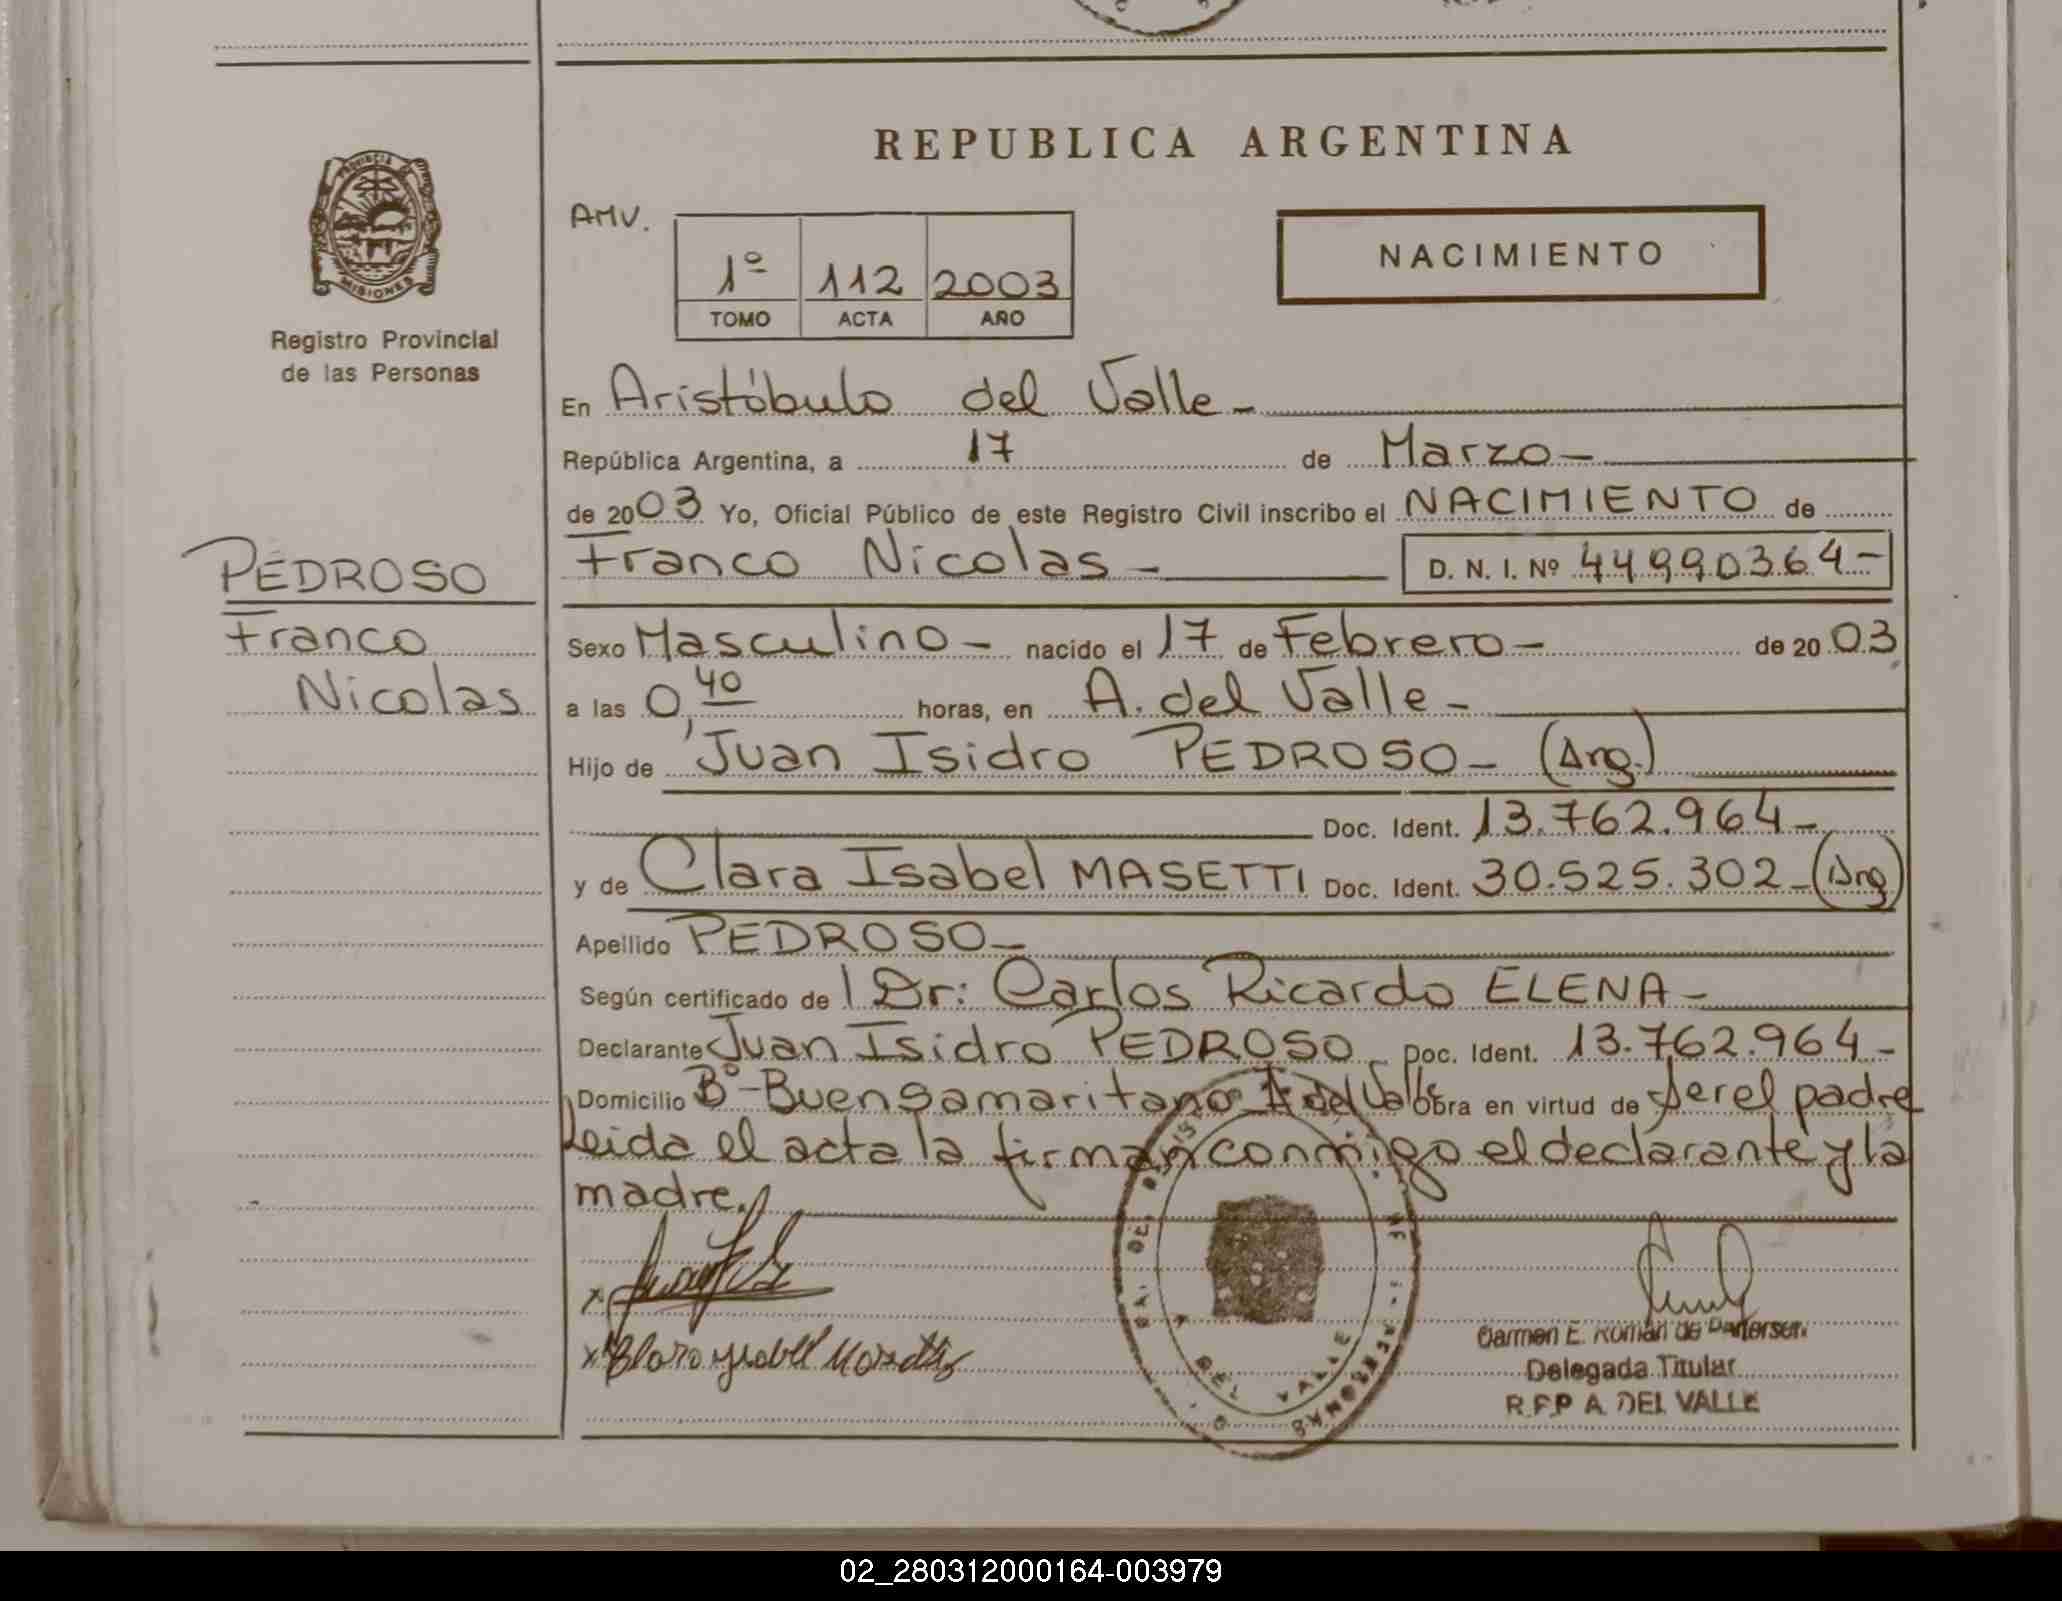 REPUBLICA ARGENTINA
PROVINCIA
MISIONES
Registro Provincial
de las Personas
AMV.
1º 112 2003
TOMO ACTA AÑO
NACIMIENTO
En Aristóbulo del Valle
República Argentina, a 17 de Marzo
de 2003 Yo, Oficial Público de este Registro Civil inscribo el NACIMIENTO de
Franco Nicolas D. N. I. Nº 44990364
PEDROSO
Franco
Nicolas
Sexo Masculino nacido el 17 de Febrero de 2003
a las 0,40 horas, en A. del Valle
Hijo de Juan Isidro PEDROSO (Arg.)
Doc. Ident. 13.762.964
y de Clara Isabel MASETTI Doc. Ident. 30.525.302 (Arg)
Apellido PEDROSO
Según certificado de Dr: Carlos Ricardo ELENA
Declarante Juan Isidro PEDROSO Doc. Ident. 13.762.964
Domicilio Bº Buen Samaritano A del Valle Obra en virtud de ser el padre
Leida el acta la firman conmigo el declarante y la
madre.
DEL VALLE
Carmen E. Román de
Delegada Titular
R.P.P A. DEL VALLE
02_280312000164-003979